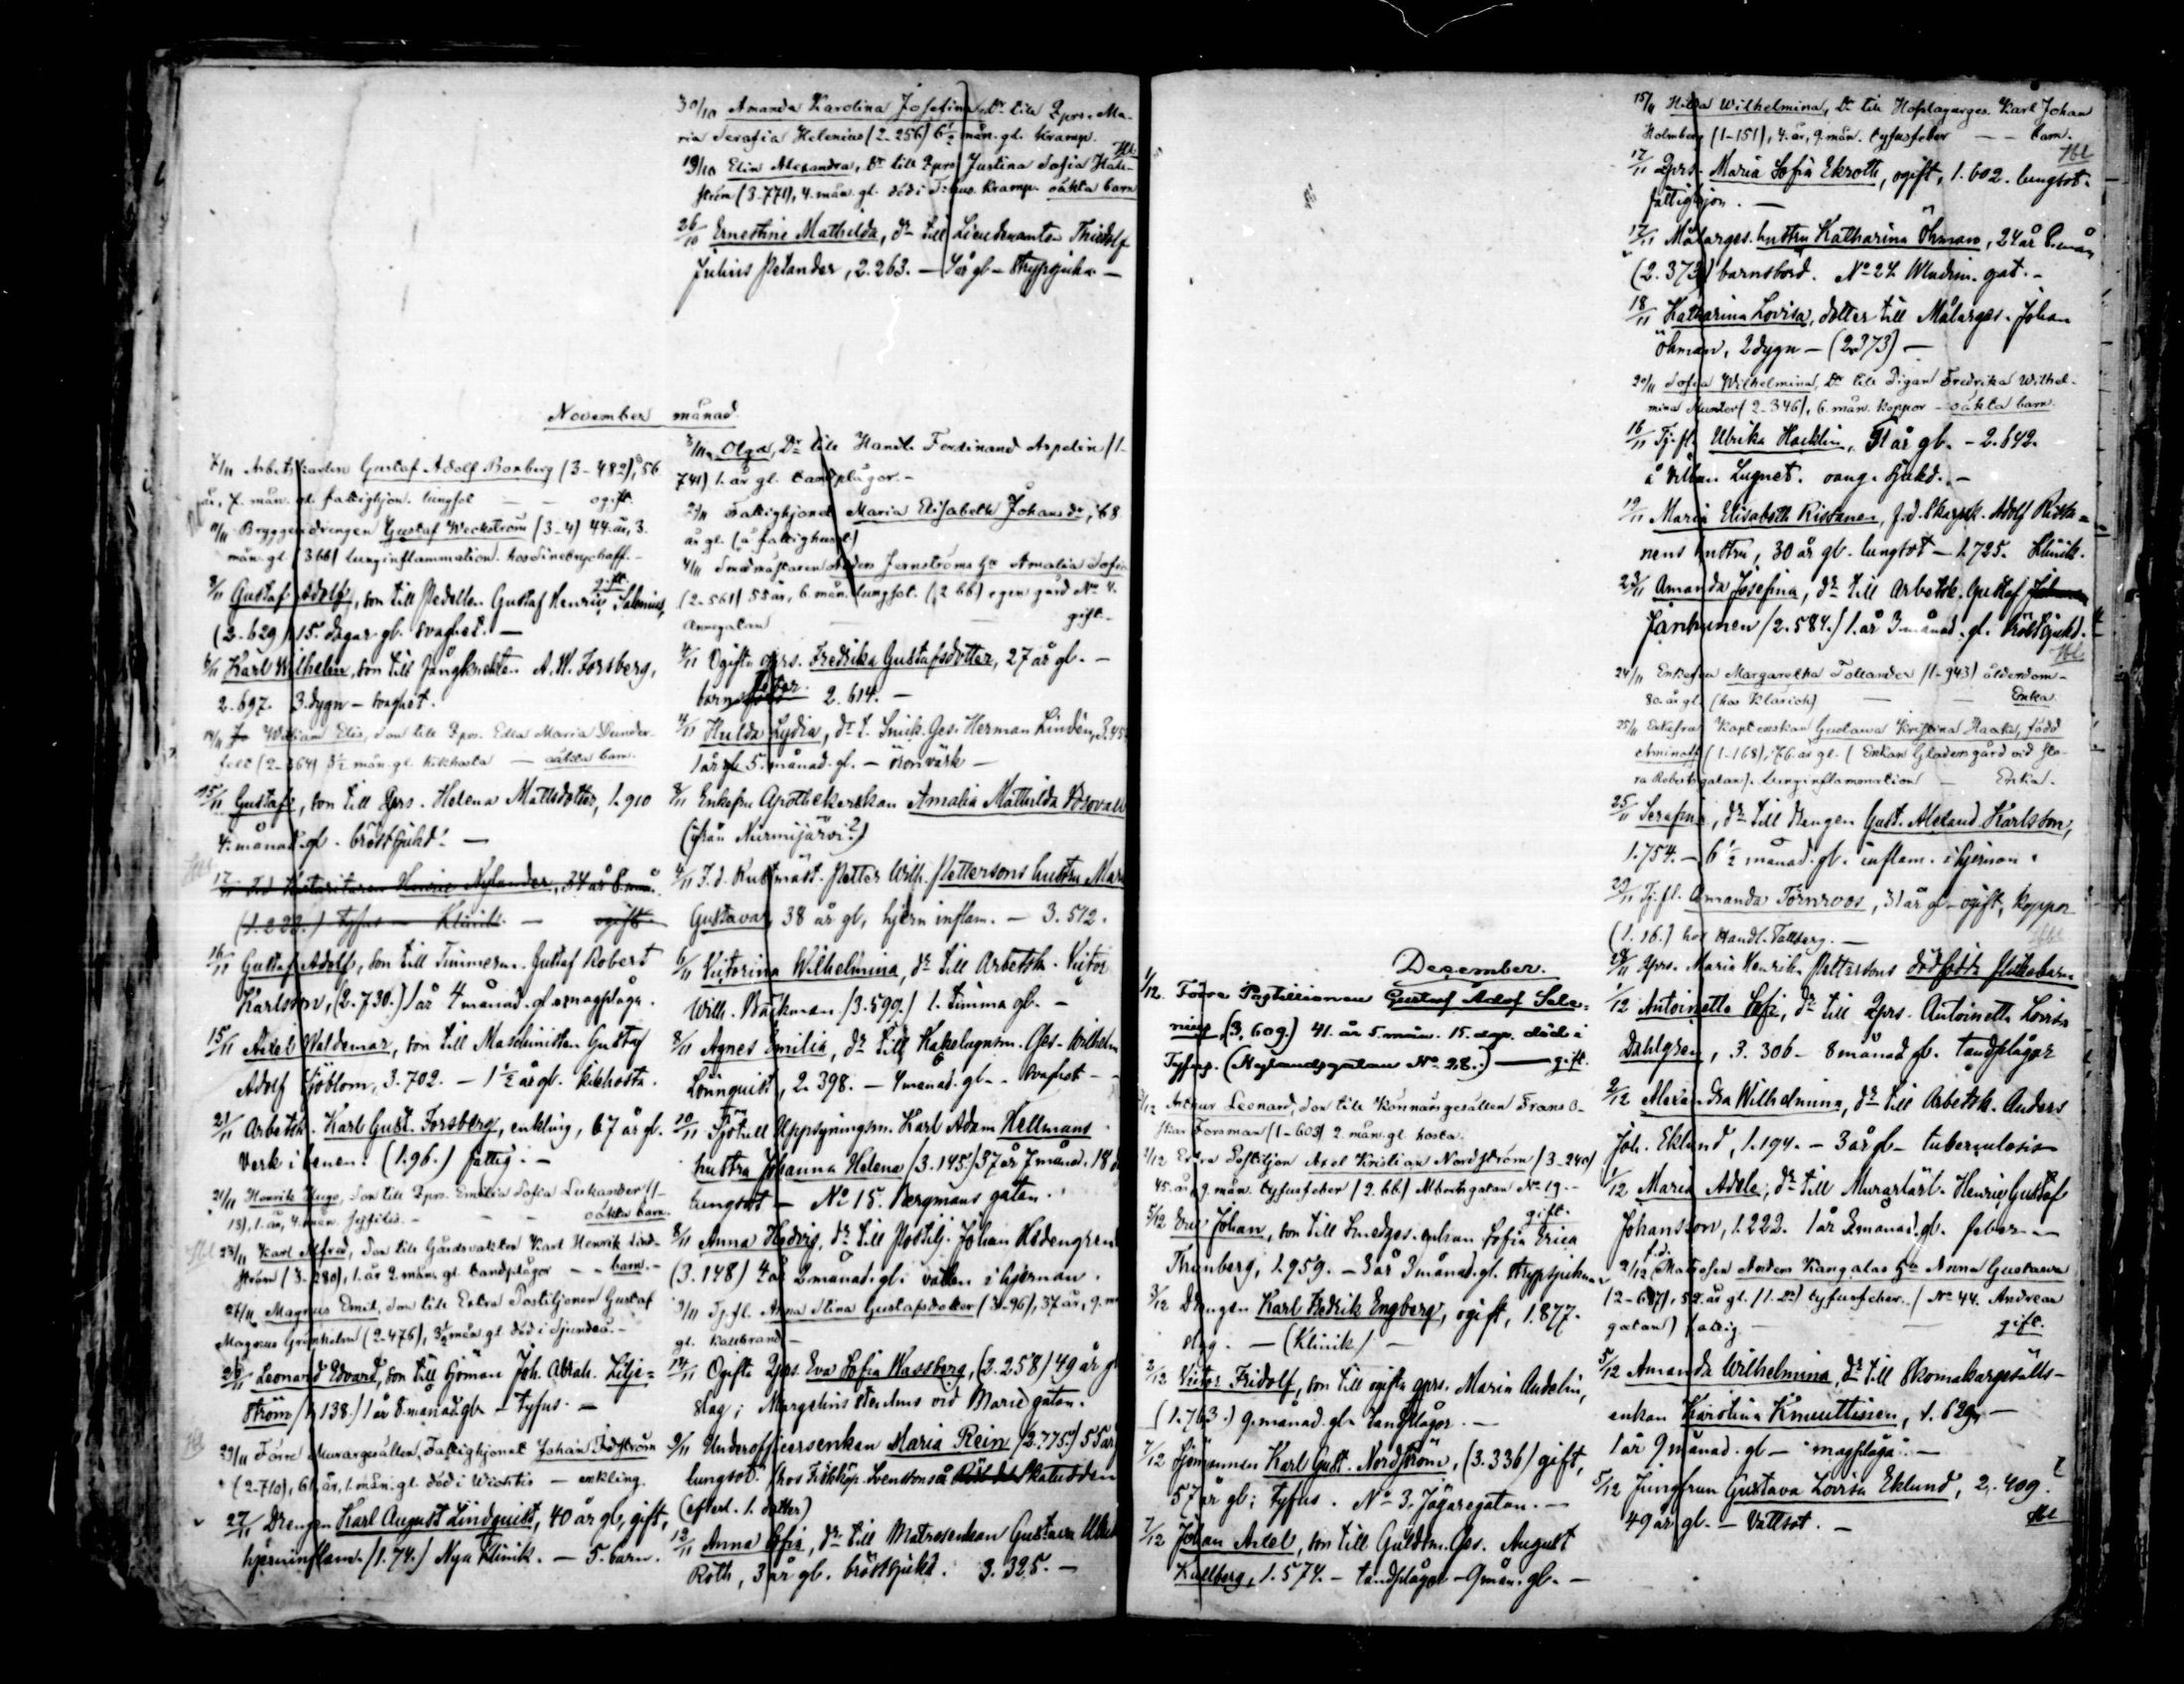 30/10 Amanda Karolina Josefina, Dr till Qprs. Ma-
ria Serafia Helenius (2-256) 6 1/2 mån. gl. kramp.
Hbl.
19/10 Elin Alexandra, Dr till Qprs. Justina Sofia Hall-
ström (3-771), 4. mån. gl. död i kramp oäkta barn
26/10 Ernestine Mathilda, dr till Lieutenanten Thiodolf
Julius Petander, 2.263. — år gl — strypsjuka —
November månad
2/11 Arbetskarlen Gustaf Adolf Bomberg (3-482), 56
år, 7. mån. gl. fattighjon. lungsot — — ogift.
9/11 Bryggeridrengen Gustaf Weckström (3-4) 44. år, 3.
mån. gl (366) lunginflammation. hos Sinebrychoff. —
gift.
8/11 Gustaf Adolf, son till Pedellen Gustaf Henric Salenius,
(2.629) 15. dagar gl. svaghet. —
6/11 Karl Wilhelm, son till Fångknekten A. W. Forsberg,
2.697. 3. dygn — svaghet.
14/11 William Elis, son till Qprs. Edla Maria Dunder-
felt (2-364) 3 1/2 mån. gl. kikhosta — oäkta barn.
15/11 Gustaf, son till Qprs. Helena Mattsdotter, 1.910
4. månad. gl. bröstsjukd. —
17/11 Henric Nylander, 34 år 8. mån.
(1.222.) tyfus — Klinik — ogift
16/11 Gustaf Adolf, son till Timmerm. Gustaf Robert
Karlsson, (2.730.) 1 år 4 månad. gl. magplåga.
15/11 Axel Waldemar, son till Maschinisten Gustaf
Adolf Sjöblom, 3.702. — 1 1/2 år gl. kikhosta.
21/11 Arbetsk. Karl Gust. Forsberg, enkling, 67 år gl.
Verk i benen. (1.96.) fattig. —
21/11 Henrik Hugo, son till Qprs. Emilia Sofia Lukander (1-
13), 1. år, 4. mån. syfilis. — — oäkta barn.
23/11 Karl Alfred, son till Gårdsvakten Karl Henrik Lind-
ström (3-280), 1. år 2. mån. gl. tandplågor — — barn. —
26/11 Magnus Emil, son till Extra Postiljonen Gustaf
Magnus Grönholm (2-476), 3 1/2 mån. gl. död i Sjundeå. —
26/11 Leonard Edvard, son till Sjöman Joh. Abrah. Lilje-
ström (1.138.) 1 år 8. månad. gl. — Tyfus. —
29/11 Förre Murargesällen, Fattighjonet Johan Fridström
(2-710), 61. år, 1. mån. gl. död i Wichtis — enkling.
27/11 Drengen Karl August Lindquist, 40 år gl., gift,
hjerninflam. (1.74.) Nya Klinik. — 5. barn.
3/11 Olga, Dr till Handl. Ferdinand Aspelin (1-
741) 1. år gl. tandplågor. —
2/11 Fattighjonet Maria Elisabeth Johansdr, 68
år gl. (å fattighuset)
4/11 Smidmästaren Anders Jernströms Hu Amalia Sofia
(2-561) 55 år, 6. mån. lungsot. (2.66) egen gård No 4.
Annegatan — — gift.
4/11 Ogifta qprs. Fredrika Gustafsdotter, 27 år gl. —
barnsfeber. 2.614. —
4/11 Hulda Lydia, dr t. Snik. Ges. Herman Lindén, 3.45
1 år gl. 5. månad. gl. — öronvärk —
8/11 Enkefru Apothekerskan Amalia Mathilda
(från Nurmijärvi?)
4/11 F. d. Rustmäst. Petter Wilh. Petterssons hustru Mari
Gustava, 38 år gl, hjern inflam. — 3.512.
6/11 Victorina Wilhelmina, dr till Arbetsk. Victor
Wilh. Bäckman (3.599.) 1. timma gl. —
8/11 Agnes Emilia, dr till Kakelugnsm. Ges. Wilhelm
Lönnquist, 2.398. — 4 månad. gl. — svaghet —
10/11 Tjotull Uppsyningsm. Karl Adam Hellmans
hustru Johanna Helena (3.145.) 37 år 7 månad. 18 d
Lungsot — No 15. Bergmans gatan.
8/11 Anna Hedvig, dr till Postilj. Johan Hedengren
(3.148) 4 år 2. månad. gl. vatten i hjernan.
9/11 Tj. fl. Anna Stina Gustafsdotter (3-96), 37 år, 9. m
gl. kallbrand —
14/11 Ogifta Qprs. Eva Sofia Wassberg, (2.258) 49 år g
Slag; Margelins stenhus vid Marie gatan.
9/11 Underofficersenkan Maria Rein (2.775.) 55 år
lungsot. (hos Fiskköp. Svensson å Skatudden
(efterl. 1. dotter)
12/11 Anna Sofia, dr till Matrosenkan Gustava
Roth, 3 år gl. bröstsjukd. 3.325. —
December.
1/12. Förre Postillionen Gustaf Adolf Sele-
nius (3.609.) 41. år 5. mån. 15. dgr. död i
Tyfus. (Nylandsgatan No 28.) — gift.
Arthur Leonard, son till Könnärgesällen Frans O-
skar Forsman (1-603) 2. mån. gl. hosta.
1/12 Extra Postiljon Axel Kristian Nordström (3-240)
45. år, 9. mån. tyfusfeber (2.66) Albertsgatan No 19. —
gift.
5/12 Eric Johan, son till Smedges. enkan Sofia Erica
Thunberg, 1.959. — 3 år 3 månad. gl. strypsjukan
3/12 Drengen Karl Fredrik Engberg, ogift, 1.877.
slag. — (Klinik) —
2/12 Victor Fridolf, son till ogifta qprs. Maria Andelin,
(1.763.) 9. månad. gl. Tandplågor. —
7/12 Sjömannen Karl Gust. Nordström, (3.336) gift,
57 år gl; tyfus. No 3. Jägaregatan. —
7/12 Johan Axel, son till Guldsm. Ges. August
Kullberg, 1.574. — tandplågor — 9 mån. gl. —
15/11 Hilda Wilhelmina, Dr till Hofslagarges. Karl Johan
Holmberg (1-151), 4. år, 9. mån. tyfusfeber — — barn.
Hbl
17/11 Qprs. Maria Sofia Ekroth, ogift, 1.602. lungsot.
fattighjon. —
17/11 Målarges. hustru Katharina Öhman, 24 år 8. mån
(2.373) barnsbörd. No 27 Wladim. gat. —
18/11 Katharina Lovisa, dotter till Målarges. Johan
Öhman, 2 dygn — (2.373) —
20/11 Sofia Wilhelmina, Dr till Pigan Fredrika Wilhel-
mina Munter (2-346), 6. mån. koppor — oäkta barn.
16/11 Tj. fl. Ulrika Hacklin, 51 år gl. — 2.642.
å Villan Lugnet. sjukd. —
19/11 Maria Elisabeth Rissanen, f. d. Skarpsk. Adolf Rissa-
nens hustru, 30 år gl. lungsot — 1.725. Klinik.
23/11 Amanda Josefina, dr till Arbetsk. Gustaf
Janhunen (2.584.) 1. år 3. månad. gl. bröstsjukd.
Hbl
24/11 Enkefru Margaretha Tollander (1-943) ålderdom —
80. år gl. (hos Klärich) — — Enka.
25/11 Enkefru Kaptenskan Gustava Kristina Haake, född
Arminoff (1-168), 76. år gl. (Enkan Gladers gård vid Sto-
ra Robertsgatan). Lunginflammation — Enka.
25/11 Serafina, dr till Drengen Gust. Alexand. Karlsson,
1.754. — 6 1/2 månad. gl. inflam. i hjernan.
29/11 Tj. fl. Amanda Törnroos, 31 år gl — ogift, koppor
(1.16.) hos Handl. Tallberg. —
Hbl
28/11 Qprs. Maria Henrika Petterssons dödfödda flickebarn
1/12 Antoinette Sofi, dr till Qprs. Antoinette Lovisa
Dahlgren, 3.306 — 8 månad. gl. tandplågor
2/12 Alexandra Wilhelmina, dr till Arbetsk. Anders
Joh. Eklund, 1.194. — 3 år gl — tuberculosis
1/12 Maria Adele, dr till Murarlärl. Henric Gustaf
Johansson, 1.222. 1 år 3. månad. gl. feber —
f.d.
2/12 Matrosen Anders Kangalas Hu Anna Gustava
(2-687), 52. år gl. (1.Dr) tyfusfeber. (No 44. Andreæ
gatan) fattig — gift.
5/12 Amanda Wilhelmina, dr till Skomakargesälls-
enkan Karolina Knuuttinen, 1.629. —
1 år 9 månad. gl — "magplåga". —
5/12 Jungfrun Gustava Lovisa Eklund, 2.409.
49 år gl. — Vattsot. —
Hbl